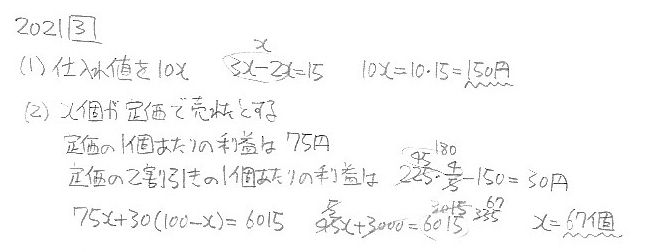 2021 3
x
(1) 仕入れ値を10x 3x-2x=15 10x=10・15=150円
(2) x個が定価で売れたとする
定価の1個あたりの利益は 75円
45 180
定価の2割引きの1個あたりの利益は 225・4/5-150=30円
75x+30(100-x)=6015 45x+3000=6015 3015 335 67 x=67個